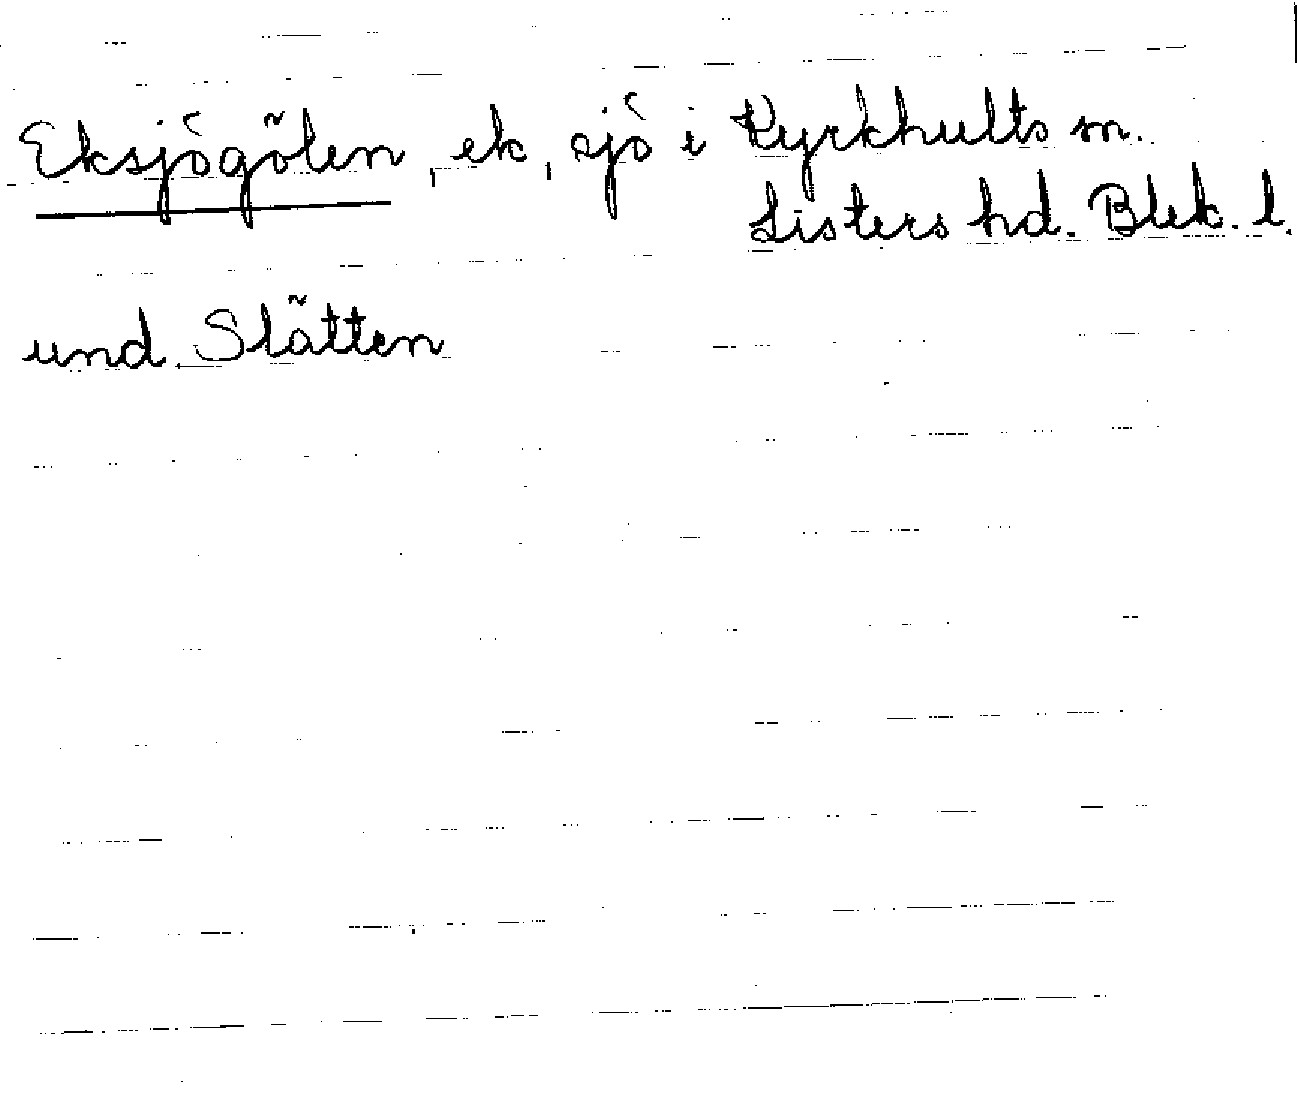 Eksjögölen, ek, sjö i Kyrkhults sn.
Listers hd. Blek. l.
und. Slätten